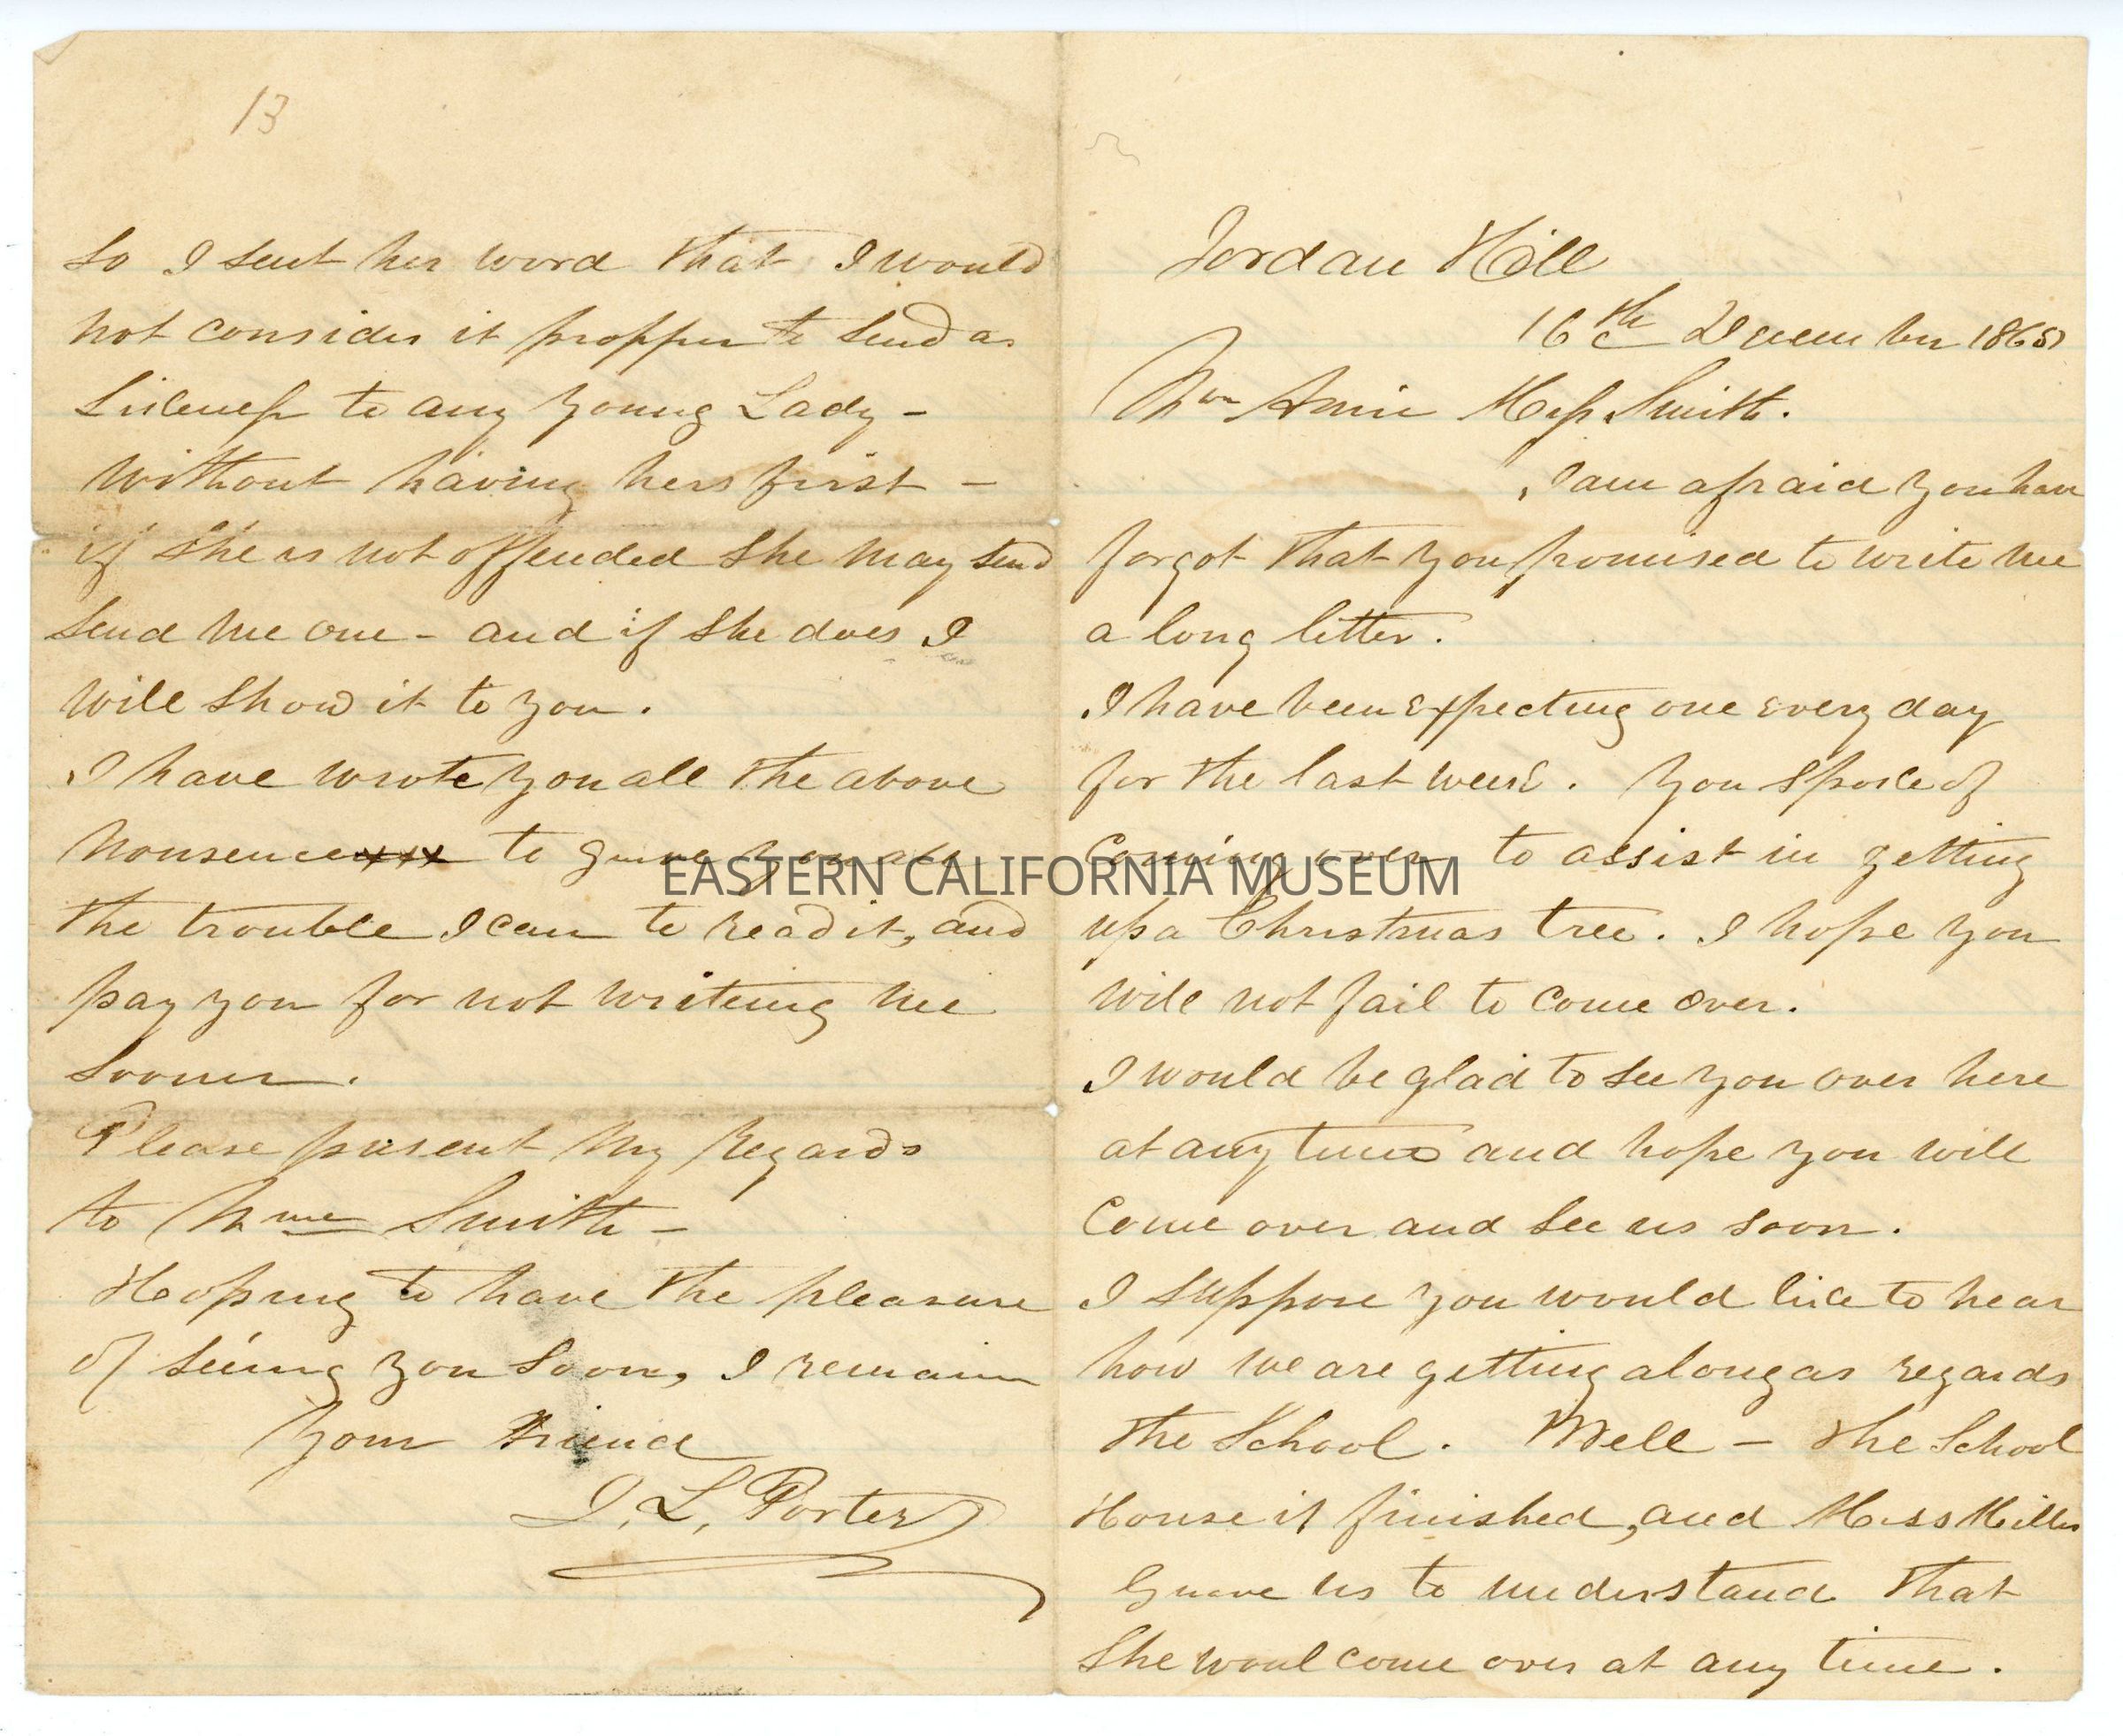 13
So I sent her word that I would
not consider it propper to send a
Likeness to any Young Lady -
without having hers first -
if she is not offended she may send
send me one - and if she does I
will show it to you.
I have wrote you all the above
nonsence to you all
the trouble I can to read it, and
pay you for not writeing me
sooner.
Please present my Regards
to Mme Smith -
Hoping to have the pleasure
of seeing you soon, I remain
Your Friend
J. L. Porter
Jordan Hill
16th December 1865
Annie Miss Smith.
I am afraid you have
forgot that you promised to write me
a long letter.
I have been expecting one every day
for the last week. You spoke of
Coming over to assist in getting
up a Christmas tree. I hope you
will not fail to come over.
I would be glad to see you over here
at any time and hope you will
Come over and see us soon.
I suppose you would like to hear
how we are getting along as regards
the School. Well - the School
House is finished, and Miss Miller
us to understand that
She woul come over at any time.
EASTERN CALIFORNIA MUSEUM